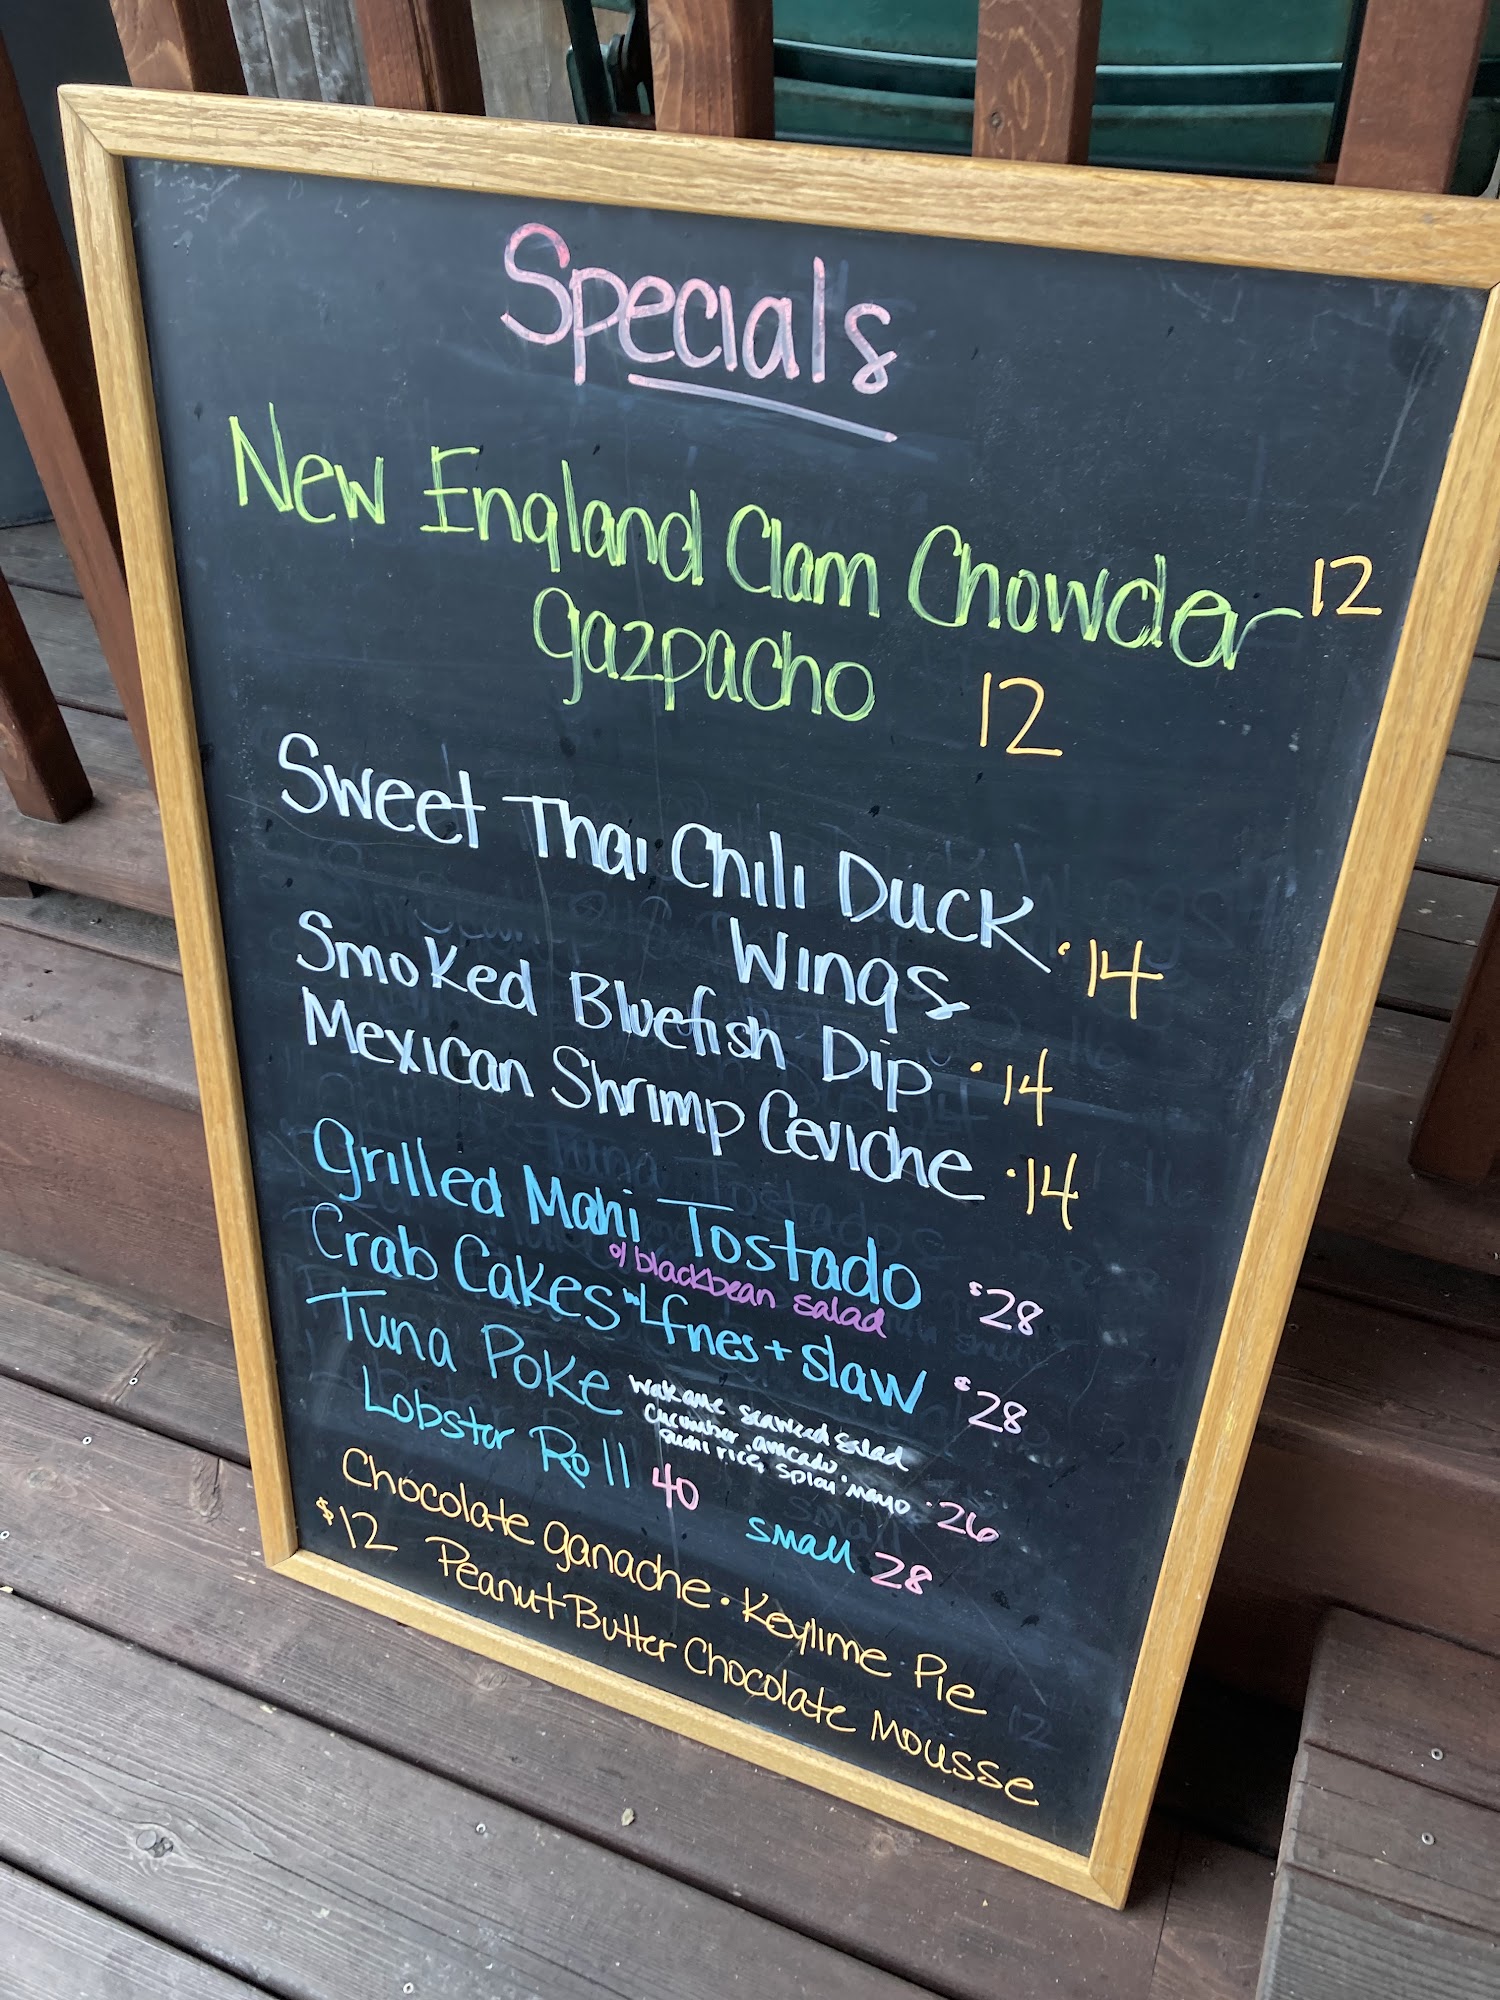 Specials
New England Clam Chowder 12
gazpacho 12
Sweet Thai Chili Duck
Wings · 14
Smoked Bluefish Dip · 14
Mexican Shrimp Ceviche · 14
Grilled Mahi Tostado $28
w/ blackbean salad
Crab Cakes w/ fries + slaw $28
Tuna Poke wakame seaweed salad
cucumber · avocado ·
sushi rice, spicy mayo · 26
Lobster Roll 40 small 28
Chocolate ganache · Keylime Pie
$12 Peanut Butter Chocolate Mousse